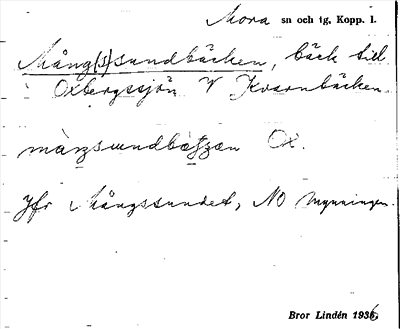 Mora sn och tg, Kopp. l.
Mång(s)sundbäcken, bäck till
Oxbergssjön V Kvarnbäcken.
Ox.
Jfr Mångssundet, NO mynningen.
Bror Lindén 1936.